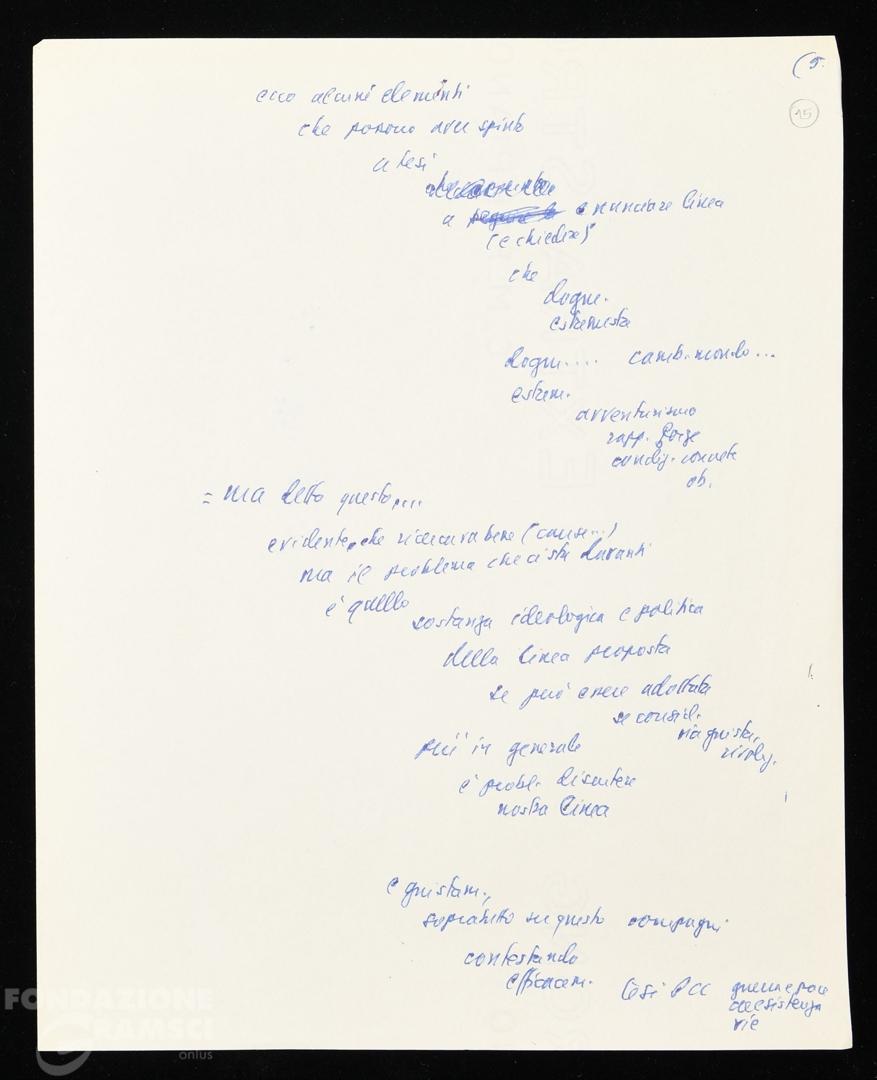 (5.
15
ecco alcuni elementi
che possono aver spinto
a tesi
a enunciare linea
(e chiedere)
che
dogm.
estremista
dogm.... camb. mondo...
estrem.
avventurismo
rapp. forze
condiz. concrete
ob.
= ma detto questo....
evidente, che ricercava bene (cause...)
ma il problema che ci sta davanti
è quello
sostanza ideologica e politica
della linea proposta
se può essere adottata
se consid.
più in generale
giusta,
rivoluz.
è probl. discutere
nostra linea
e giustam.,
sopratutto su questo compagni
contestando
efficacem. tesi PCC guerra e pace
coesistenza
vie
FONDAZIONE
GRAMSCI
onlus